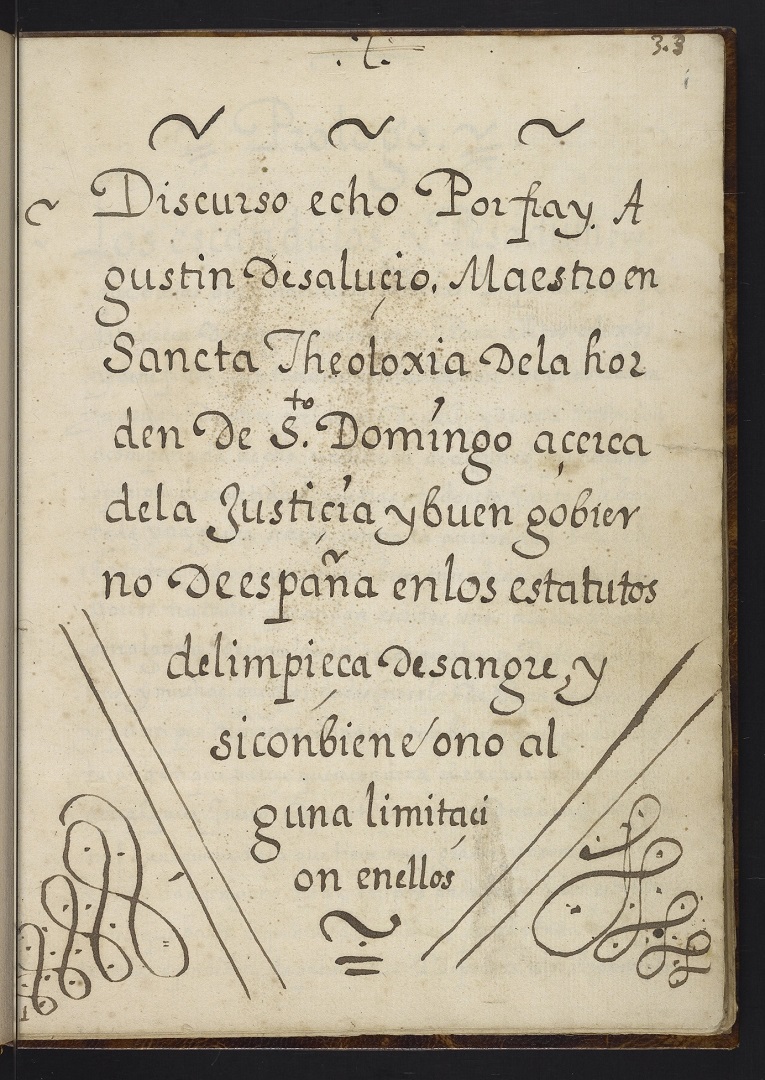 3.3
Discurso echo Por fray. A
gustin Desalucio. Maestro en
Sancta Theoloxia Dela hor
den De S.to Domingo açerca
dela Justiçia y buen gobier
no De españa enlos estatutos
delimpieça Desangre, y
siconbiene / ono al
guna limitaçi
on enellos